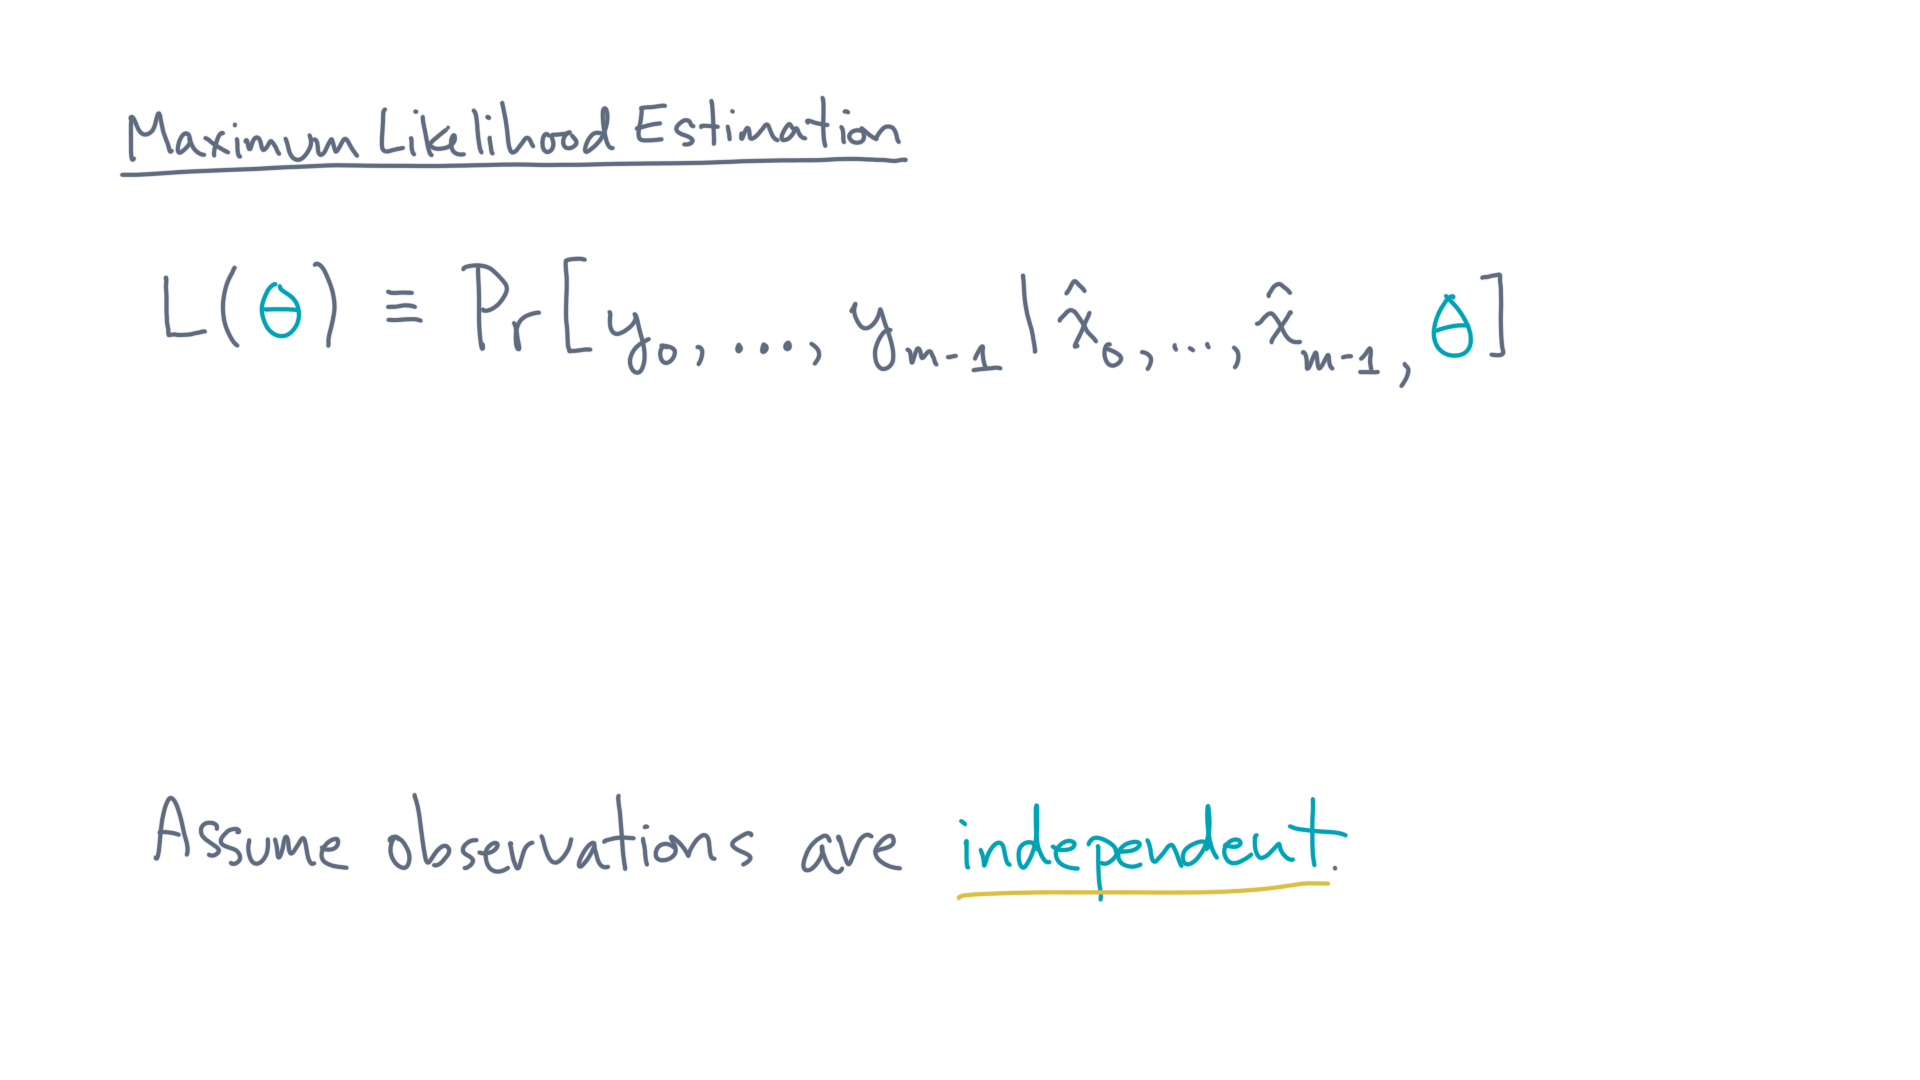 Maximum Likelihood Estimation
L(θ) ≡ Pr[y₀, ..., yₘ₋₁ | x̂₀, ..., x̂ₘ₋₁, θ]
Assume observations are independent.